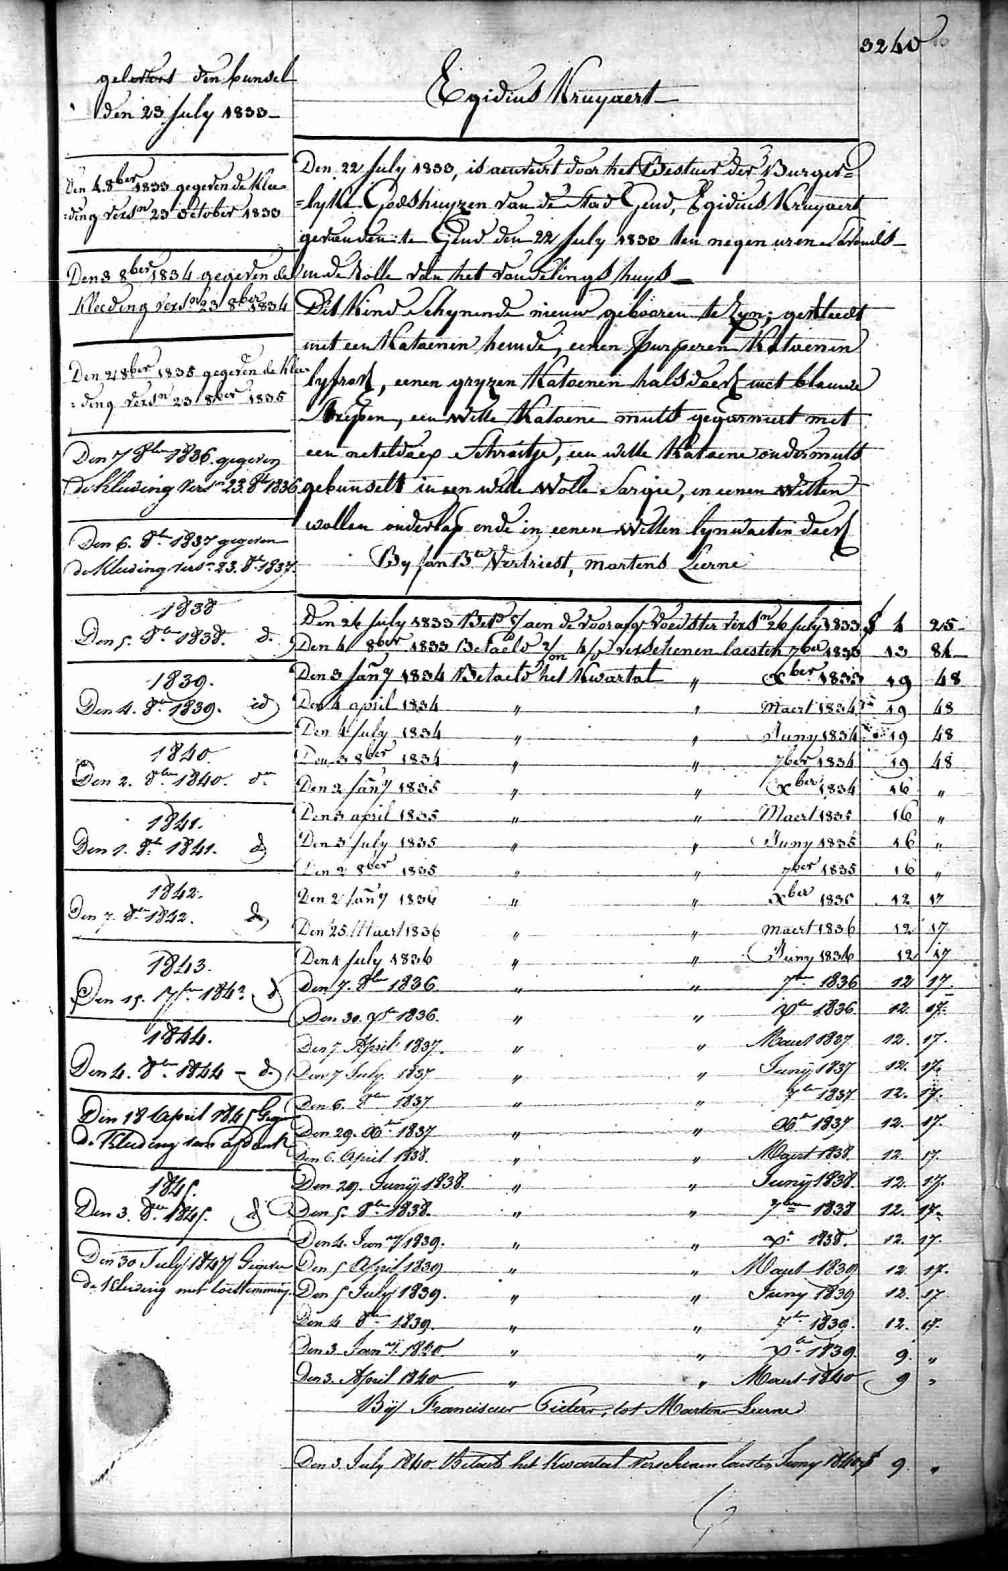 3240
gelevert den bunsel
den 23 July 1833
Den 4 8ber 1833 gegeven de Klee
ding versn 23 October 1833
Den 3 8ber 1834 gegeven de
Kleeding versn 23 8ber 1834
Den 2 8ber 1835 gegeven de Klee
ding versn 23 8ber 1835
Den 7 8ber 1836 gegeven
de Kleeding versn 23. 8br 1836
Den 6. 8br 1837 gegeven
de Kleeding versn 23. 8br 1837
1838
Den 5. 8br 1838. do
1839.
Den 4. 8br 1839. id
1840.
Den 2. 8br 1840. do
1841.
Den 1. 8br 1841. do
1842.
Den 7. 8br 1842. do
1843.
Den 15. 7br 1843 do
1844.
Den 4. 8br 1844 - do
Den 18 April 1845 Gegev
de Kleeding van afdank
1845.
Den 3. 8br 1845. do
Den 30 July 1847 Gegeven
de Kleeding met toestemming
Egidius Kruyaert
Den 22 July 1833, is aenveert door het Bestuer der Burger=
=lyke Godshuyzen van de Stad Gend, Egidius Kruyaert
gevonden te Gend den 22 July 1833 ten negen uren s'avonds
in de rolle van het vondelings huys
Dit Kind Schynende nieuw gebooren te Zyn; gekleedt
met een Katoenen hemde, eenen purperen Katoenen
lyfrok, eenen gryzen Katoenen halsdoek met blauwe
Streepen, een witte Katoene muts gegarneert met
een neteldoex Schrootje, een witte Katoene ondermuts
gebunselt in een witte Wolle Sargie, en eenen Witten
wollen onderlap ende in eenen Witten lynwaeten doek
By Jan Bte Vertriest, Martens Leerne
Den 26 July 1833 Bet aen de voedster versn 26 July 1833 f 4 25
Den 4 8ber 1833 Betaelt verschenen laesten 7ber 1833 13 84
Den 3 Jany 1834 Betaelt het Kwartal " Xber 1833 19 48
Den 4 april 1834 " " Maert 1834 19 48
Den 4 July 1834 " " Juny 1834 19 48
Den 3 8ber 1834 " " 7ber 1834 19 48
Den 2 Jany 1835 " " Xber 1834 16 "
Den 3 april 1835 " " Maert 1835 16 "
Den 3 July 1835 " " Juny 1835 16 "
Den 2 8ber 1835 " " 7ber 1835 16 "
Den 2 Jany 1836 " " Xber 1835 12 17
Den 25 Maert 1836 " " Maert 1836 12 17
Den 1 July 1836 " " Juny 1836 12 17
Den 7. 8br 1836 " " 7br 1836 12 17.
Den 30. Xbr 1836. " " Xbr 1836 12. 17.
Den 7. April 1837. " " Maert 1837 12. 17.
Den 7 July 1837 " " Junij 1837 12. 17.
Den 6. 8br 1837 " " 7br 1837 12. 17.
Den 29. Xbr 1837 " " Xbr 1837 12. 17.
Den 6. April 1838. " " Maert 1838. 12. 17.
Den 29. Junij 1838. " " Junij 1838. 12. 17.
Den 5. 8br 1838. " " 7bre 1838 12. 17.
Den 4. Jany 1839. " " Xr 1838. 12. 17.
Den 5 April 1839 " " Maert 1839 12. 17.
Den 5 July 1839. " " Juny 1839 12. 17
Den 4 8br 1839. " " 7br 1839. 12. 17.
Den 3. Jany. 1840 " " Xbr 1839 9. "
Den 3. April 1840 " " Maert 1840 9 "
Bij Franciscus Pieters, tot Marten Leerne
Den 3. July 1840. Betaelt het Kwartal verschenen laesten Juny 1840 f 9 "